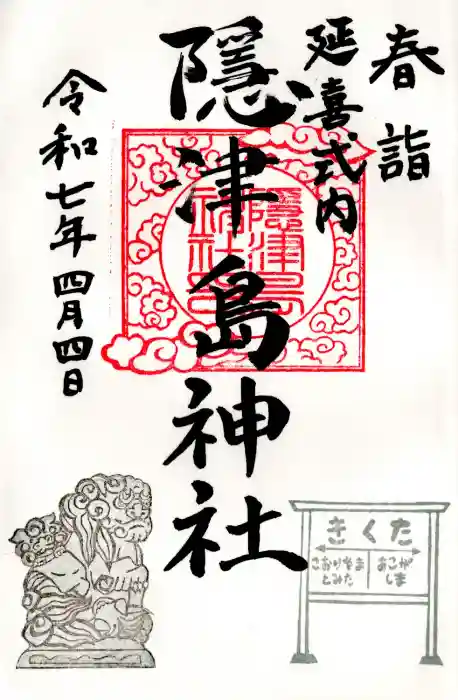 春詣
延喜式内
隱津島神社
令和七年四月四日
隱津島
神社
きくた
こおりやま
とみた
あこが
しま